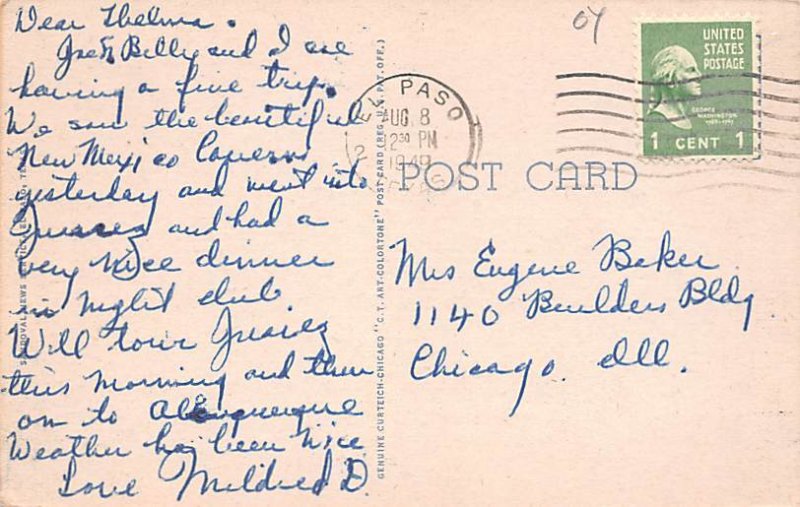 Dear Thelma.
Billy and I are
having a fine trip.
We saw the beautiful
New Mexico Caverns
yesterday and went into
Juarez and had a
very nice dinner
in night club
Will tour Juarez
this morning and then
on to Albuquerque
Weather has been nice
Love Mildred D.
GENUINE CURTEICH-CHICAGO "C.T. ART-COLORTONE" POST CARD (REG. U.S. PAT. OFF.)
04
EL PASO
AUG 8
2 30 PM
UNITED
STATES
POSTAGE
GEORGE
WASHINGTON
1 CENT 1
POST CARD
Mrs Eugene Baker
1140 Builders Bldg
Chicago. Ill.